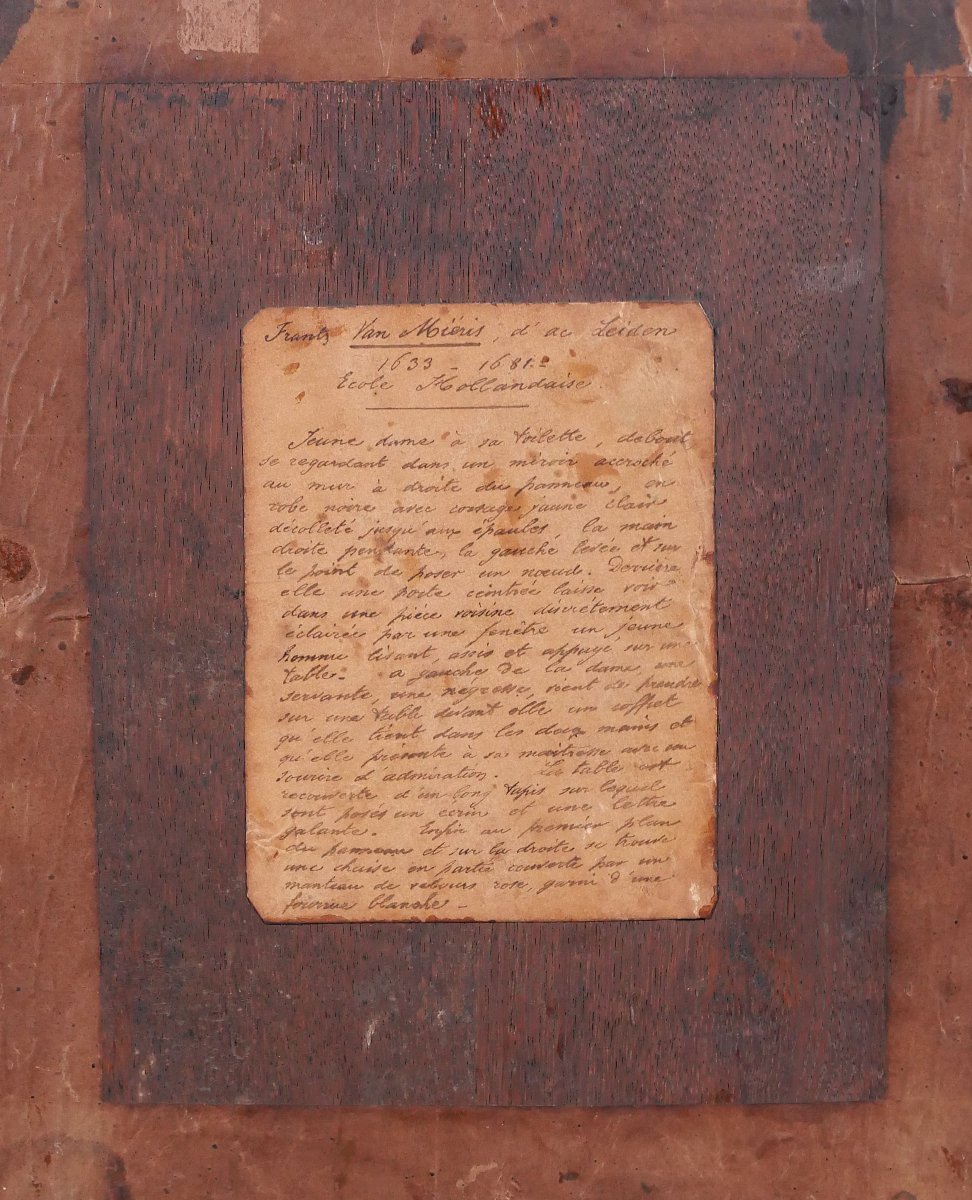 Frantz Van Miéris, d' ac Leiden
1633 - 1681.
Ecole Hollandaise.
Jeune dame à sa toilette, debout,
se regardant dans un miroir accroché
au mur à droite du panneau, en
robe noire avec corsage jaune clair
décolleté jusqu'aux épaules la main
droite pendante, la gauche levée et sur
le point de poser un nœud. Derrière
elle une porte ceintrée laisse voir
dans une pièce voisine discrètement
éclairée par une fenêtre un jeune
homme lisant, assis et appuyé sur une
table. a gauche de la dame, une
servante, une negresse, vient de prendre
sur une table devant elle un coffret
qu'elle tient dans les deux mains et
qu'elle présente à sa maitresse avec un
sourire d'admiration. La table est
recouverte d'un long tapis sur lequel
sont posés un ecrin et une lettre
galante. Enfin au premier plan
du panneau et sur la droite se trouve
une chaise en partie couverte par un
manteau de velours rose, garni d'une
fourrure blanche -